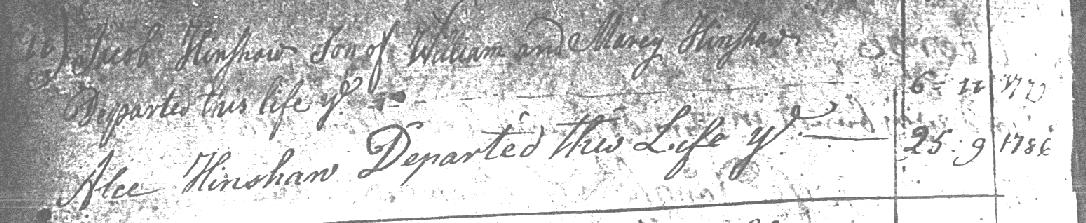 Jacob Hinshaw Son of William and Marey Hinshaw
Departed this life yᵉ 6 11
Alce Hinshaw Departed this Life yᵉ 25 9 1786